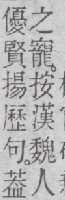 之寵。按漢魏人
優賢揚歷句。蓋